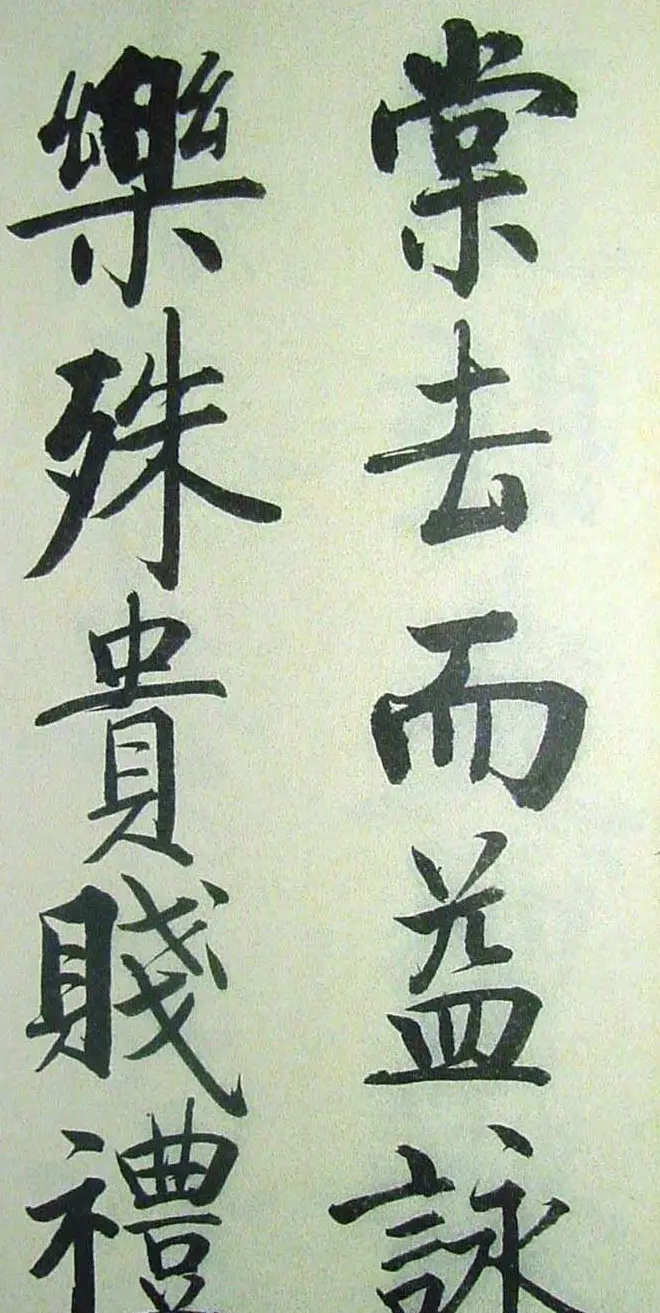 棠去而益詠
樂殊貴賤禮